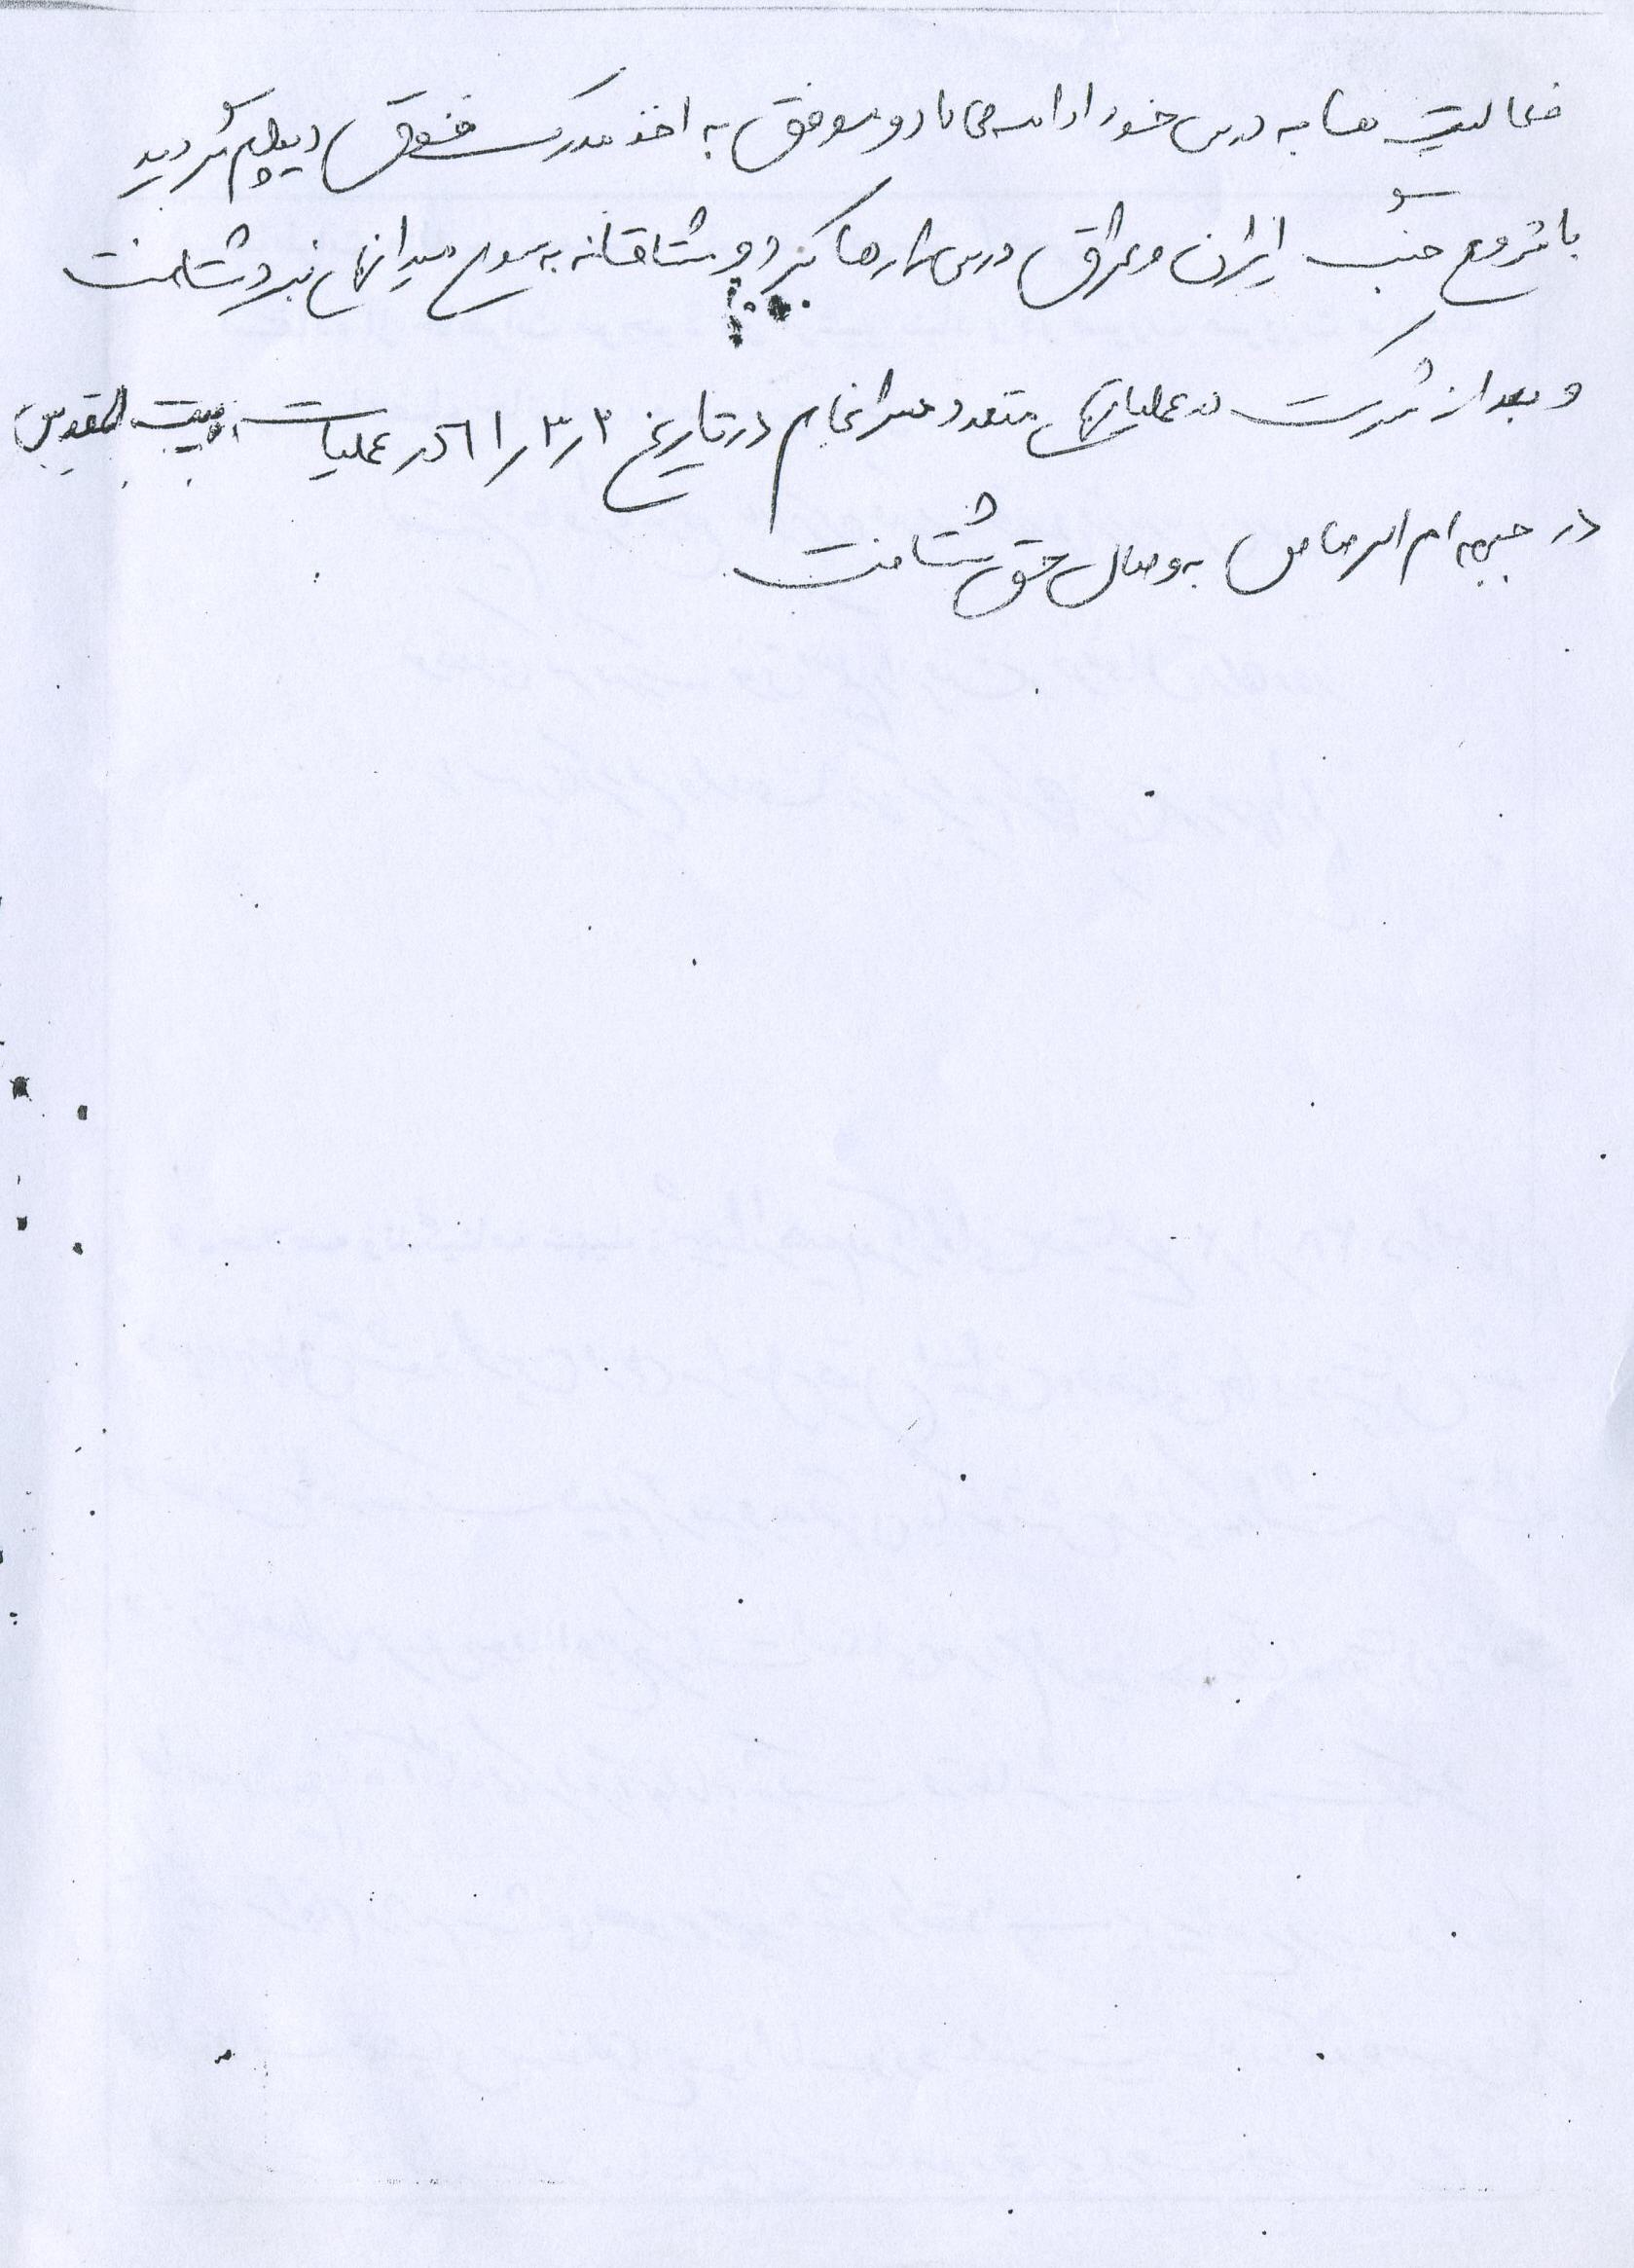 فعالیت ها به درس خود ادامه می داد و موفق به اخذ مدرک فوق دیپلم گردید
با شروع جنگ ایران و عراق درس را رها کرد و مشتاقانه به سوی میدانهای نبرد شتافت
و بعد از شرکت در عملیاتهای متعدد سرانجام در تاریخ ۳ر۳ر۶۱ در عملیات بیت المقدس
در جبهه ام الرصاص به وصال حق شتافت